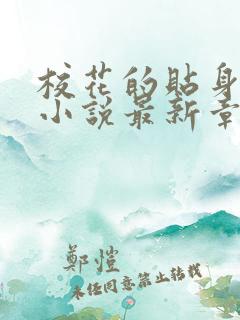 校花的貼身
小說最新章
鄭愷
未经同意禁止转载